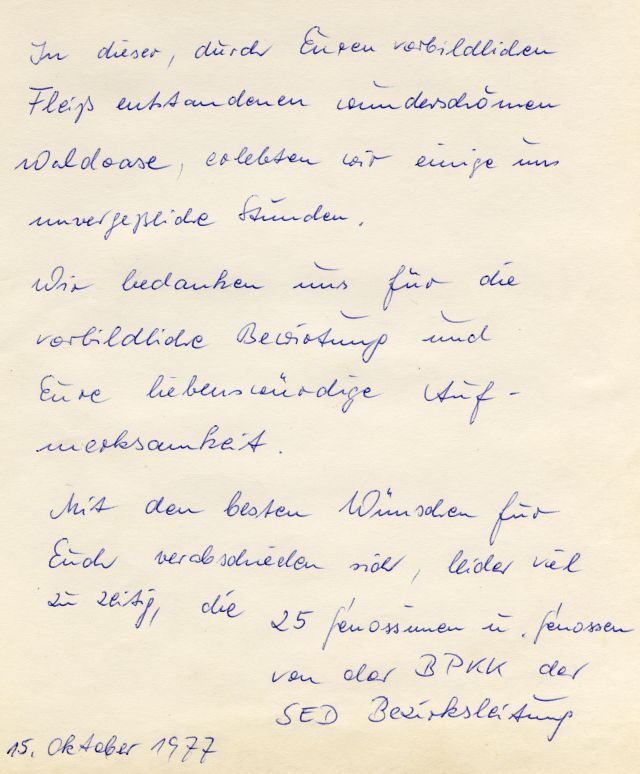 In dieser, durch Euren vorbildlichen
Fleiß entstandenen wunderschönen
Waldoase, erlebten wir einige uns
unvergeßliche Stunden.
Wir bedanken uns für die
vorbildliche Bewirtung und
Eure liebenswürdige Auf-
merksamkeit.
Mit den besten Wünschen für
Euch verabschieden sich, leider viel
zu zeitig, die
25 Genossinnen u. Genossen
von der BPKK der
SED Bezirksleitung
15. Oktober 1977